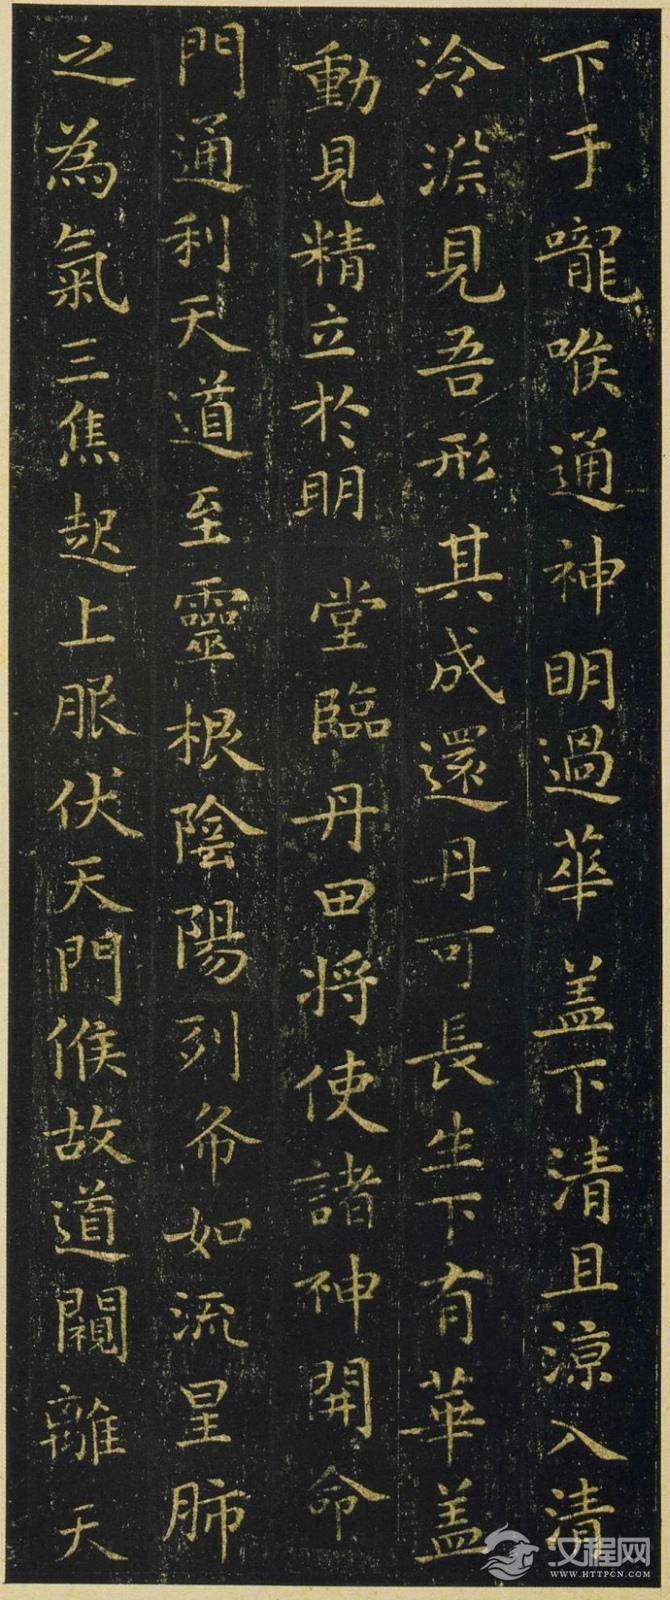 下于嚨喉通神明過華盖下清且涼入清
泠淵見吾形其成還丹可長生下有華盖
動見精立於明堂臨丹田将使諸神開命
門通利天道至靈根陰陽列布如流星肺
之為氣三焦起上服伏天門候故道闚離天
汉程网
WWW.HTTPCN.COM